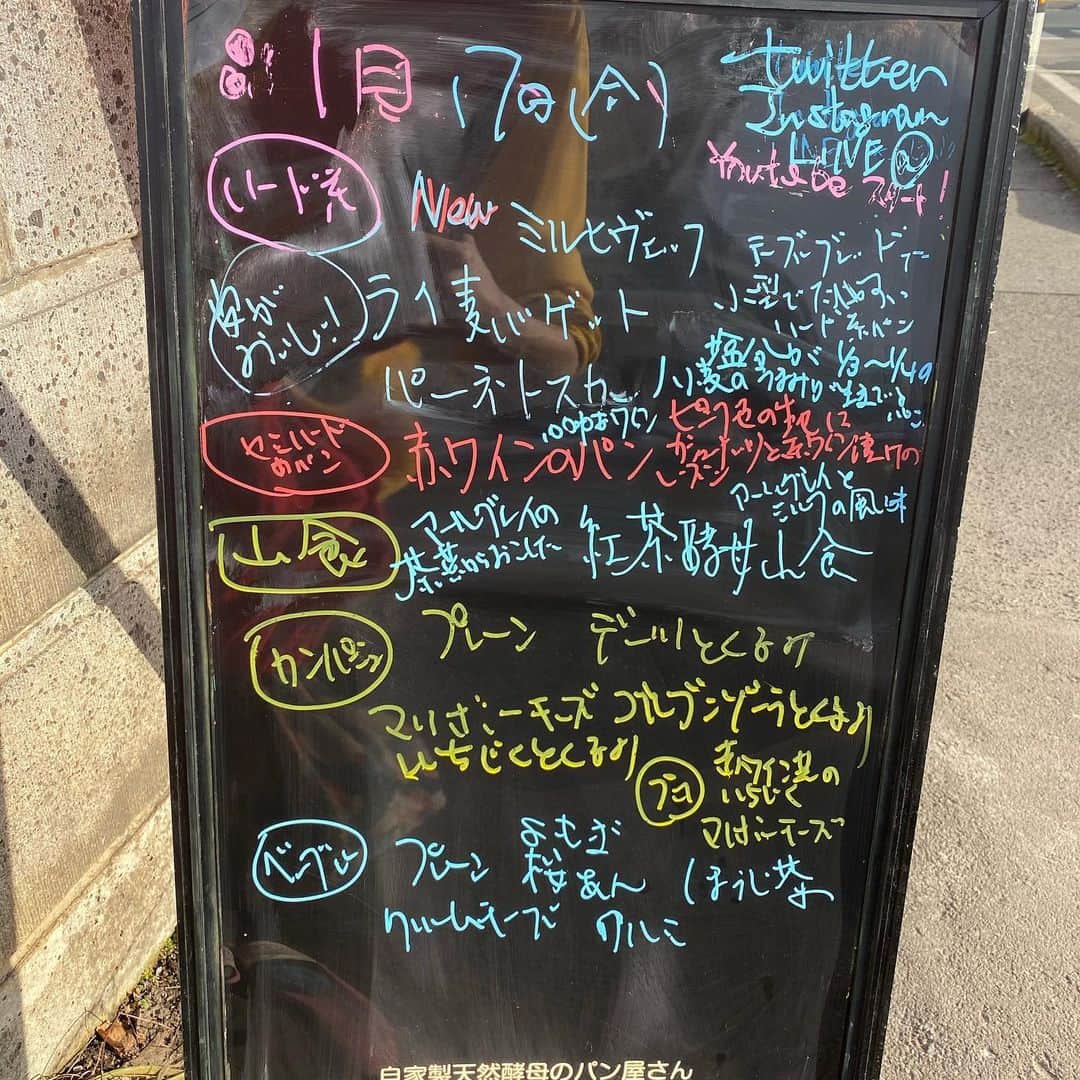 1月 17日(金)
twitter
Instagram
LIVE
Youtube スタート!
ハード系
New ミルヒヴェッフ
味がおいしい!
ライ麦バゲット
小型で
ハード系パン
パーネトスカーノ
塩分が 1/3〜1/4の
小麦の
セミハード
のパン
赤ワインのパン
100%赤ワイン
ピンク色の生地に
赤ワイン漬けの
レーズン
山食
アールグレイの
茶葉からおこした
紅茶酵母山食
アールグレイと
ミルクの風味
カンパーニュ
プレーン デーツとくるみ
マリボーチーズ ゴルゴンゾーラとくるみ
いちじくとくるみ
プチ
赤ワイン煮の
いちじく
マリボーチーズ
ベーグル
プレーン よもぎ
桜あん ほうじ茶
クリームチーズ クルミ
自家製天然酵母のパン屋さん